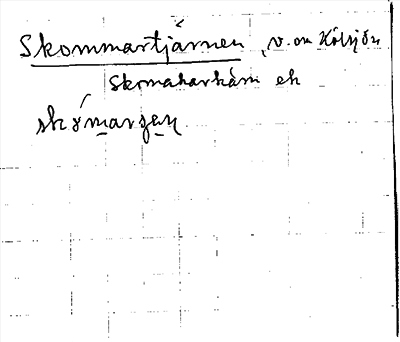 Skommartjärnen, v. om Kölsjön
Skomakarkärn ek
skómarȷen